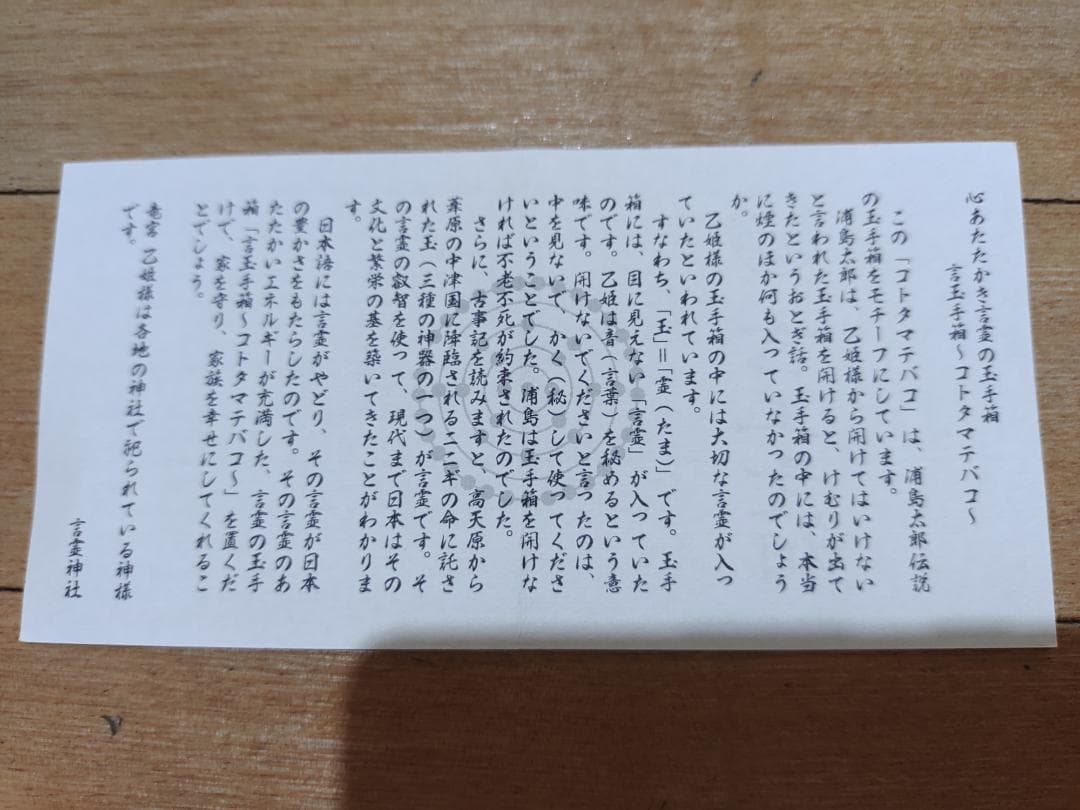 心あたたかき言霊の玉手箱
言玉手箱～コトタマテバコ～
この「コトタマテバコ」は、浦島太郎伝説
の玉手箱をモチーフにしています。
浦島太郎は、乙姫様から開けてはいけない
と言われた玉手箱を開けると、けむりが出て
きたというおとぎ話。玉手箱の中には、本当
に煙のほか何も入っていなかったのでしょう
か。
乙姫様の玉手箱の中には大切な言霊が入っ
ていたといわれています。
すなわち、「玉」＝「霊（たま）」です。玉手
箱には、目に見えない「言霊」が入っていた
のです。乙姫は音（言葉）を秘めるという意
味です。開けないでくださいと言ったのは、
中を見ないで、かく（秘）して使ってくださ
いということでした。浦島は玉手箱を開けな
ければ不老不死が約束されたのでした。
さらに、古事記を読みますと、高天原から
葦原の中津国に降臨されるニニギの命に託さ
れた玉（三種の神器の一つ）が言霊です。そ
の言霊の叡智を使って、現代まで日本はその
文化と繁栄の基を築いてきたことがわかりま
す。
日本語には言霊がやどり、その言霊が日本
の豊かさをもたらしたのです。その言霊のあ
たたかいエネルギーが充満した、言霊の玉手
箱「言玉手箱～コトタマテバコ～」を置くだ
けで、家を守り、家族を幸せにしてくれるこ
とでしょう。
竜宮 乙姫様は各地の神社で祀られている神様
です。
言霊神社